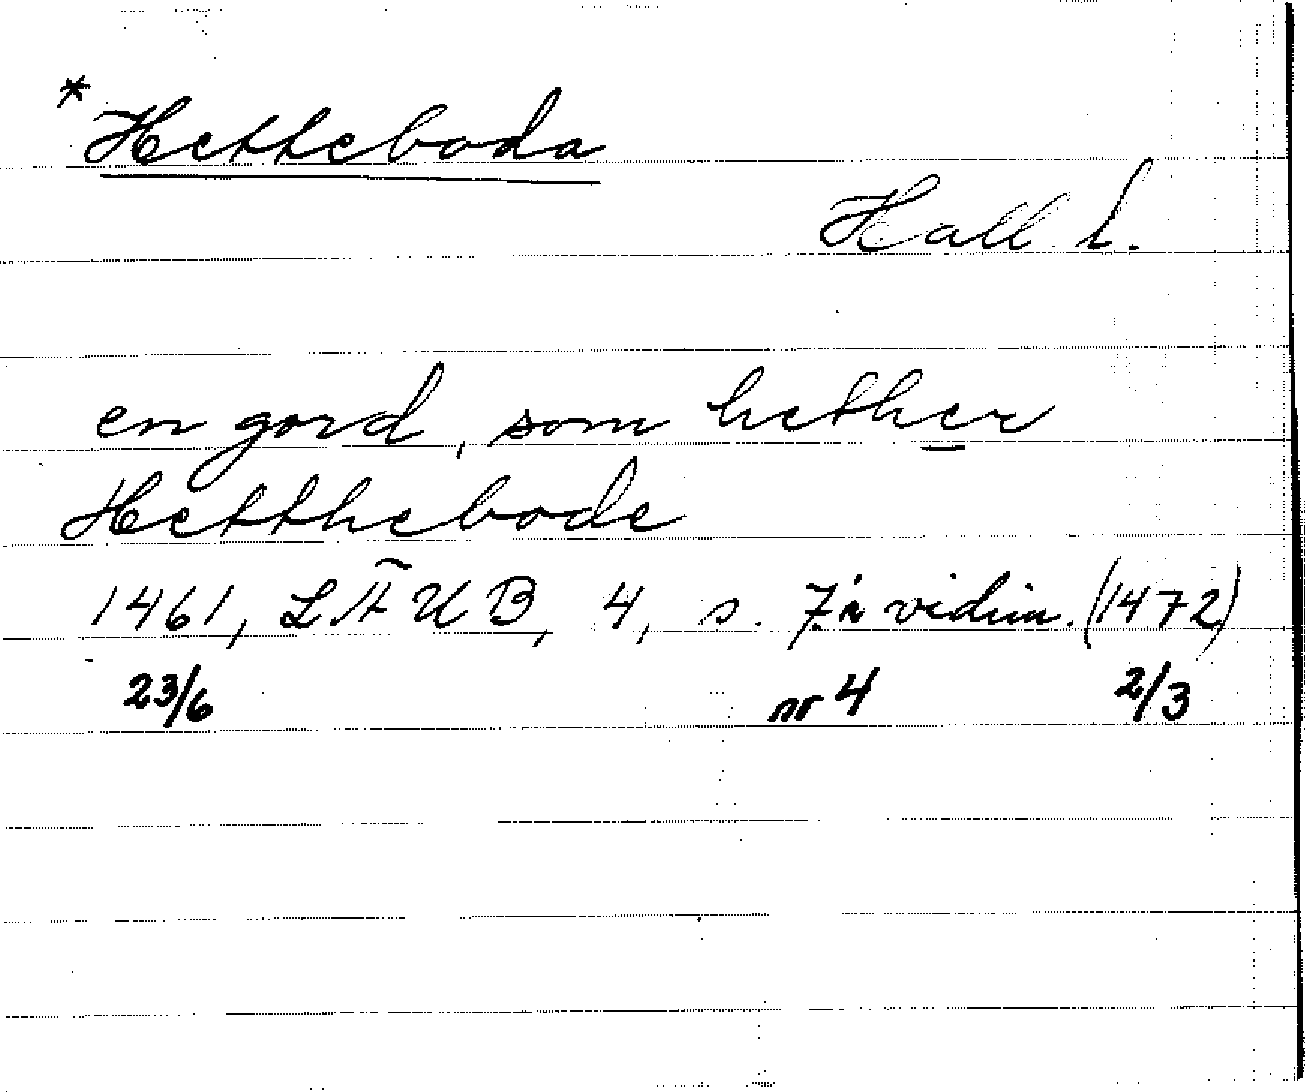 *Hetteboda
Hall l.
en gord, som hether
Hetthebode
1461, LÄUB, 4, s. 7. i vidim. (1472)
23/6 nr 4 2/3